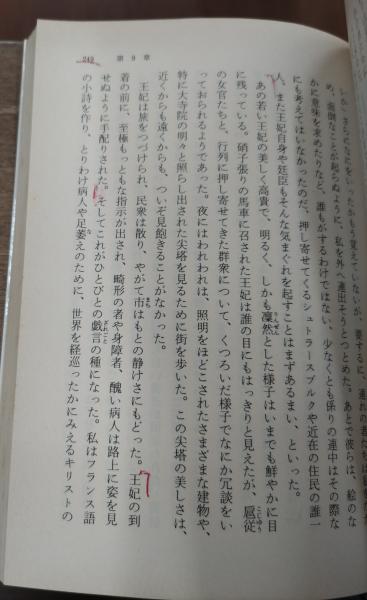 242 第9章
しか、さらになにをいったかもう覚えていないが、要するに、連れの者たちは
め、面倒なことが起らぬように、私を外へ連出そうとつとめた。あとで彼らは、絵のな
かに意味を求めたりなど、誰もがするわけではない、少なくとも係りの連中はその際な
にも考えてはいなかったのだ、押し寄せてくるシュトラースブルクや近在の住民の誰一
人、また王妃自身や廷臣もそんな気まぐれを起すことはまずあるまい、といった。
あの若い王妃の美しく高貴で、明るく、しかも凜然とした様子はいまでも鮮やかに目
に残っている。硝子張りの馬車に召された王妃は誰の目にもはっきりと見えたが、扈従
の女官たちと、行列に押し寄せてきた群衆について、くつろいだ様子でなにか冗談をい
っておられるようであった。夜にはわれわれは、照明をほどこされたさまざまな建物や、
特に大寺院の明々と照らし出された尖塔を見るために街を歩いた。この尖塔の美しさは、
近くからも遠くからも、ついぞ見飽きることがなかった。
王妃は旅をつづけられ、民衆は散り、やがて市はもとの静けさにもどった。王妃の到
着の前に、至極もっともな指示が出され、畸形の者や身障者、醜い病人は路上に姿を見
せぬように手配りされた。そしてこれがひとびとの戯言の種になった。私はフランス語
の小詩を作り、とりわけ病人や足萎えのために、世界を経巡ったかにみえるキリストの